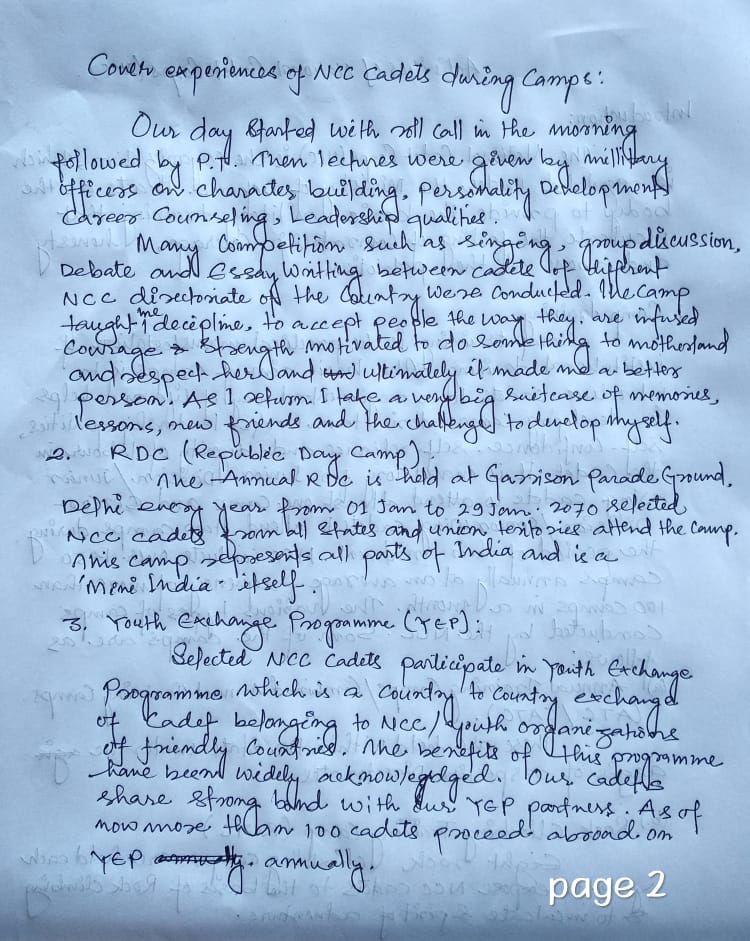 Cover experiences of NCC Cadets during Camps:
Our day started with roll call in the morning
followed by P.T. Then lectures were given by millitary
officers on character building, Personality Development
Career Counseling, Leadership qualities.
Many Competition such as singing, group discussion,
Debate and Essay Writting between cadets of different
NCC directorate of the Country were conducted. The camp
taught me decepline, to accept people the way they are infused
Courage & Strength motivated to do something to motherland
and respect her and ultimately it made me a better
person. As I return I take a very big suitcase of memories,
lessons, new friends and the challenge to develop myself.
2. RDC (Republic Day Camp)
The Annual RDC is held at Garrison Parade Ground,
Delhi every year from 01 Jan to 29 Jan. 2070 selected
NCC cadets from all States and union teritories attend the camp.
This camp represents all parts of India and is a
'Meni India' itself.
3. Youth Exchange Programme (YEP):
Selected NCC Cadets participate in Youth Exchange
Programme which is a Country to Country exchange
of Cadet belonging to NCC/Youth organizations
of friendly Countries. The benefits of this programme
have been widely acknowlegdged. Our cadets
share strong bond with our YEP partners. As of
now more than 100 cadets proceed abroad on
YEP annually.
page 2